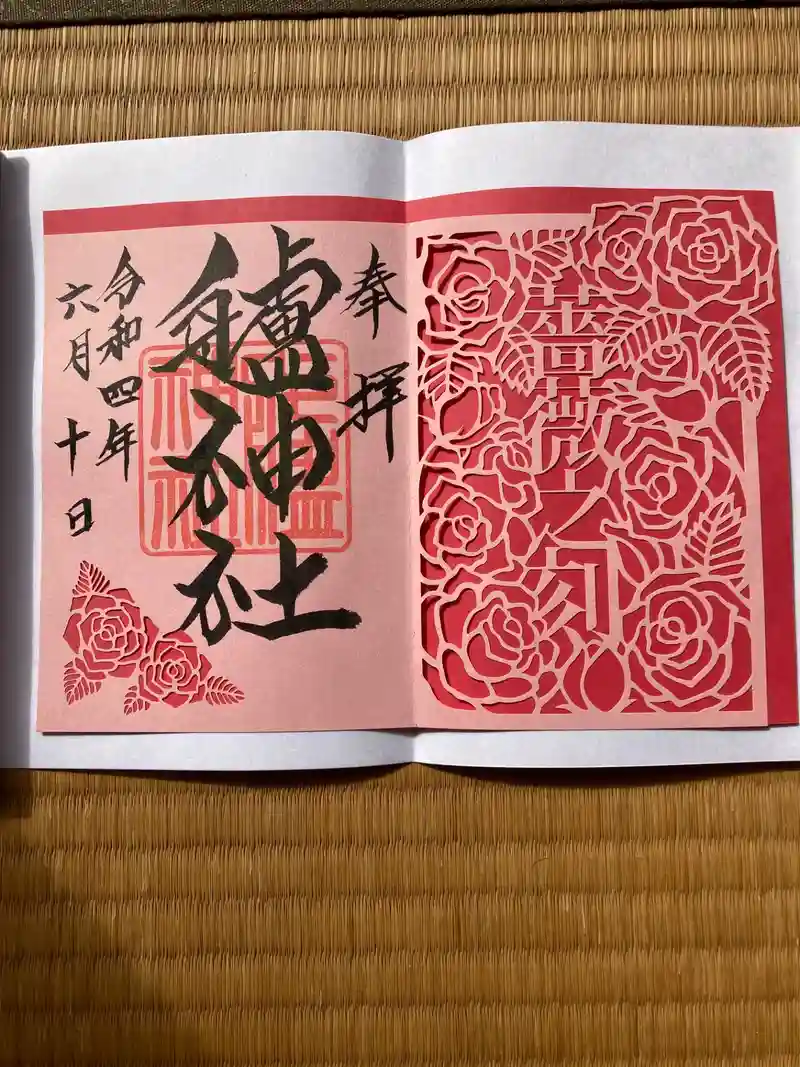 薔薇之
奉拝
艫神社
艫
神社
令和四年
六月十日